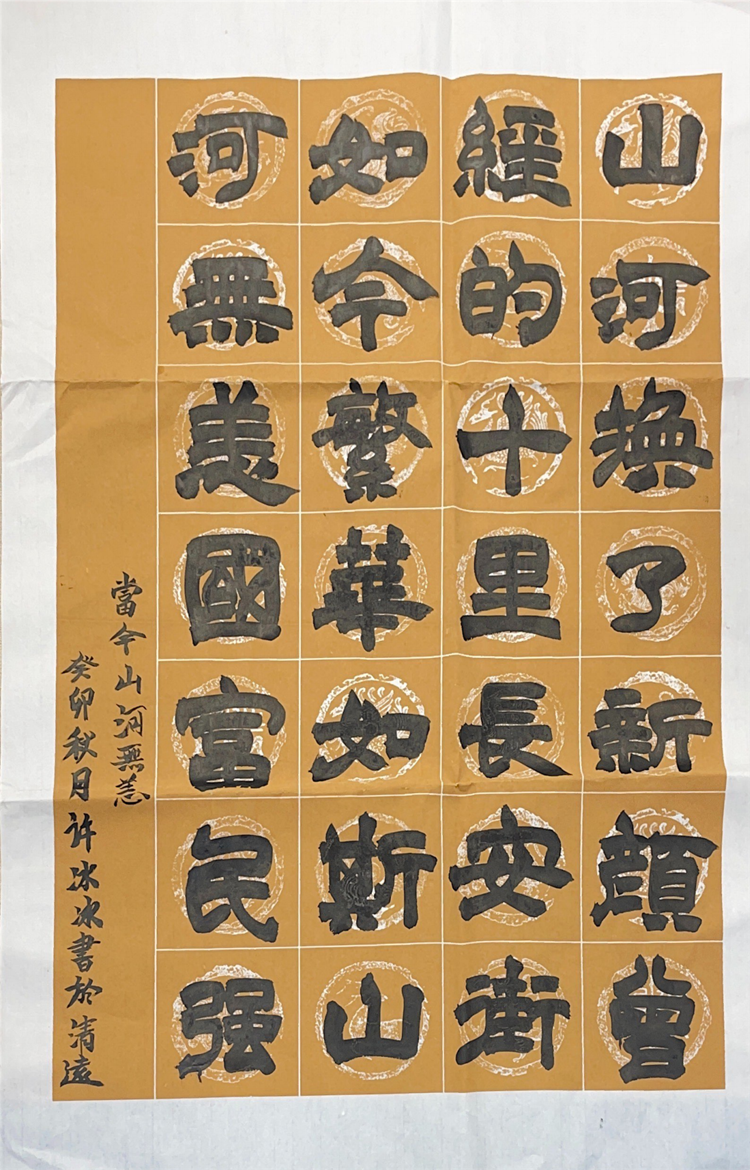 山河換了新顔曾
經的十里長安街
如今繁華如斯山
河無恙國富民强
當今山河無恙
癸卯秋月許冰冰書於清遠